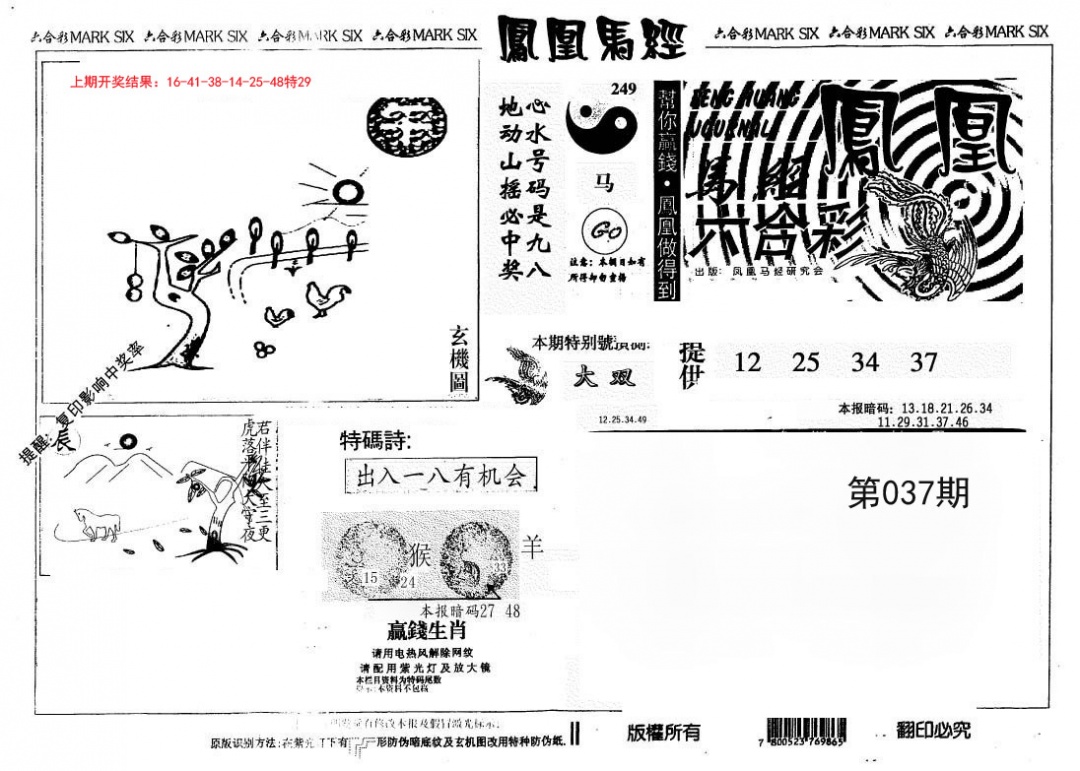 六合彩MARK SIX 六合彩MARK SIX 六合彩MARK SIX 六合彩MARK SIX
鳳凰馬經
六合彩MARK SIX 六合彩MARK SIX 六合彩MARK SIX
上期开奖结果：16-41-38-14-25-48特29
心水号码是九八
地动山摇必中奖
249
马
GO
注意：本期日如有
所得却勿宣揚
幫你贏錢·鳳凰做得到
FENG HUANG
JOURNAL
鳳凰
馬經
六合彩
出版：凤凰马经研究会
玄機圖
本期特别號預測:
大双
12.25.34.49
提供
12 25 34 37
本报暗码：13.18.21.26.34
11.29.31.37.46
提醒：复印影响中奖率
辰
特碼詩:
出入一八有机会
第037期
猴
羊
15
24
33
本报暗码27 48
赢錢生肖
请用电热风解除网纹
请配用紫光灯及放大镜
本栏目资料为特码尾数
版權所有
7 800523 769865
翻印必究
形防伪暗底纹及玄机图改用特种防伪纸.
原版识别方法:在紫光灯下有